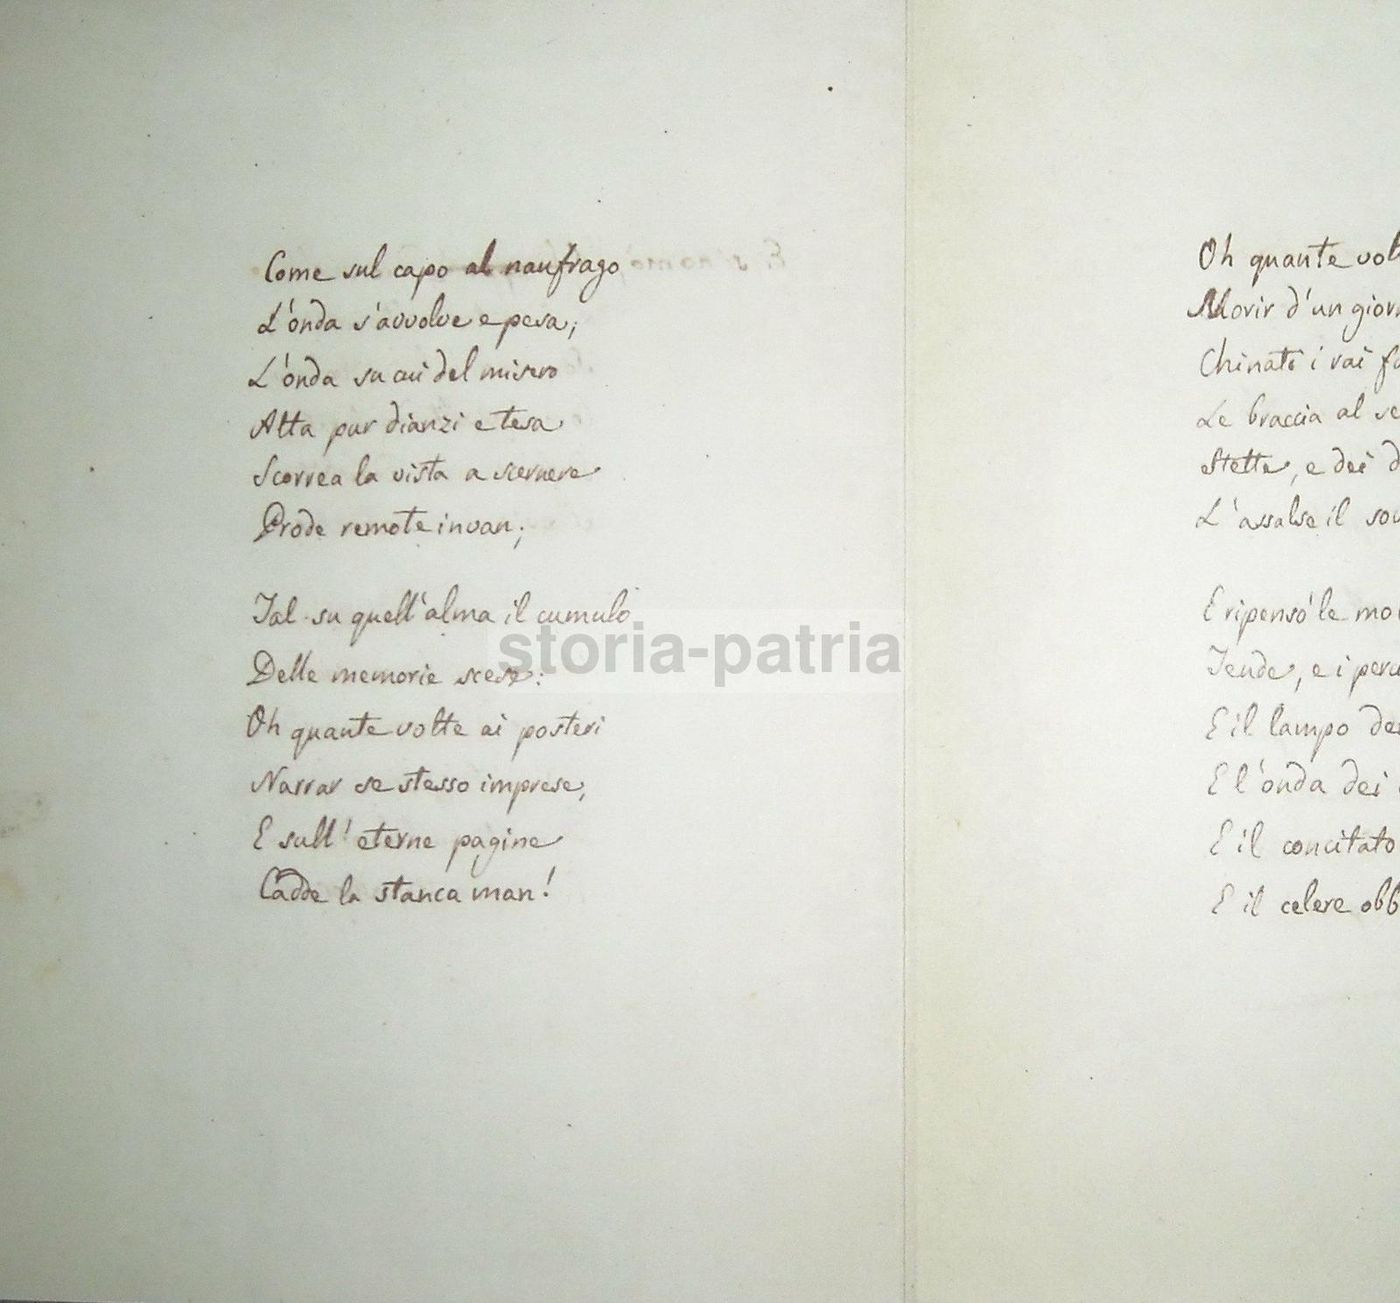 Come sul capo al naufrago
L'onda s'avvolve e pesa;
L'onda su cui del misero
Alta pur dianzi e tesa
Scorrea la vista a scernere
Prode remote invan;
Tal su quell'alma il cumulo
Delle memorie scese:
Oh quante volte ai posteri
Narrar se stesso imprese,
E sull' eterne pagine
Cadde la stanca man!
Oh quante
Morir d'un
Chinati i rai
Le braccia al
Stette, e dei
L'assalse il
E ripensò le
Tende, e i
E il lampo
E l'onda dei
E il concitato
E il celere
storia-patria